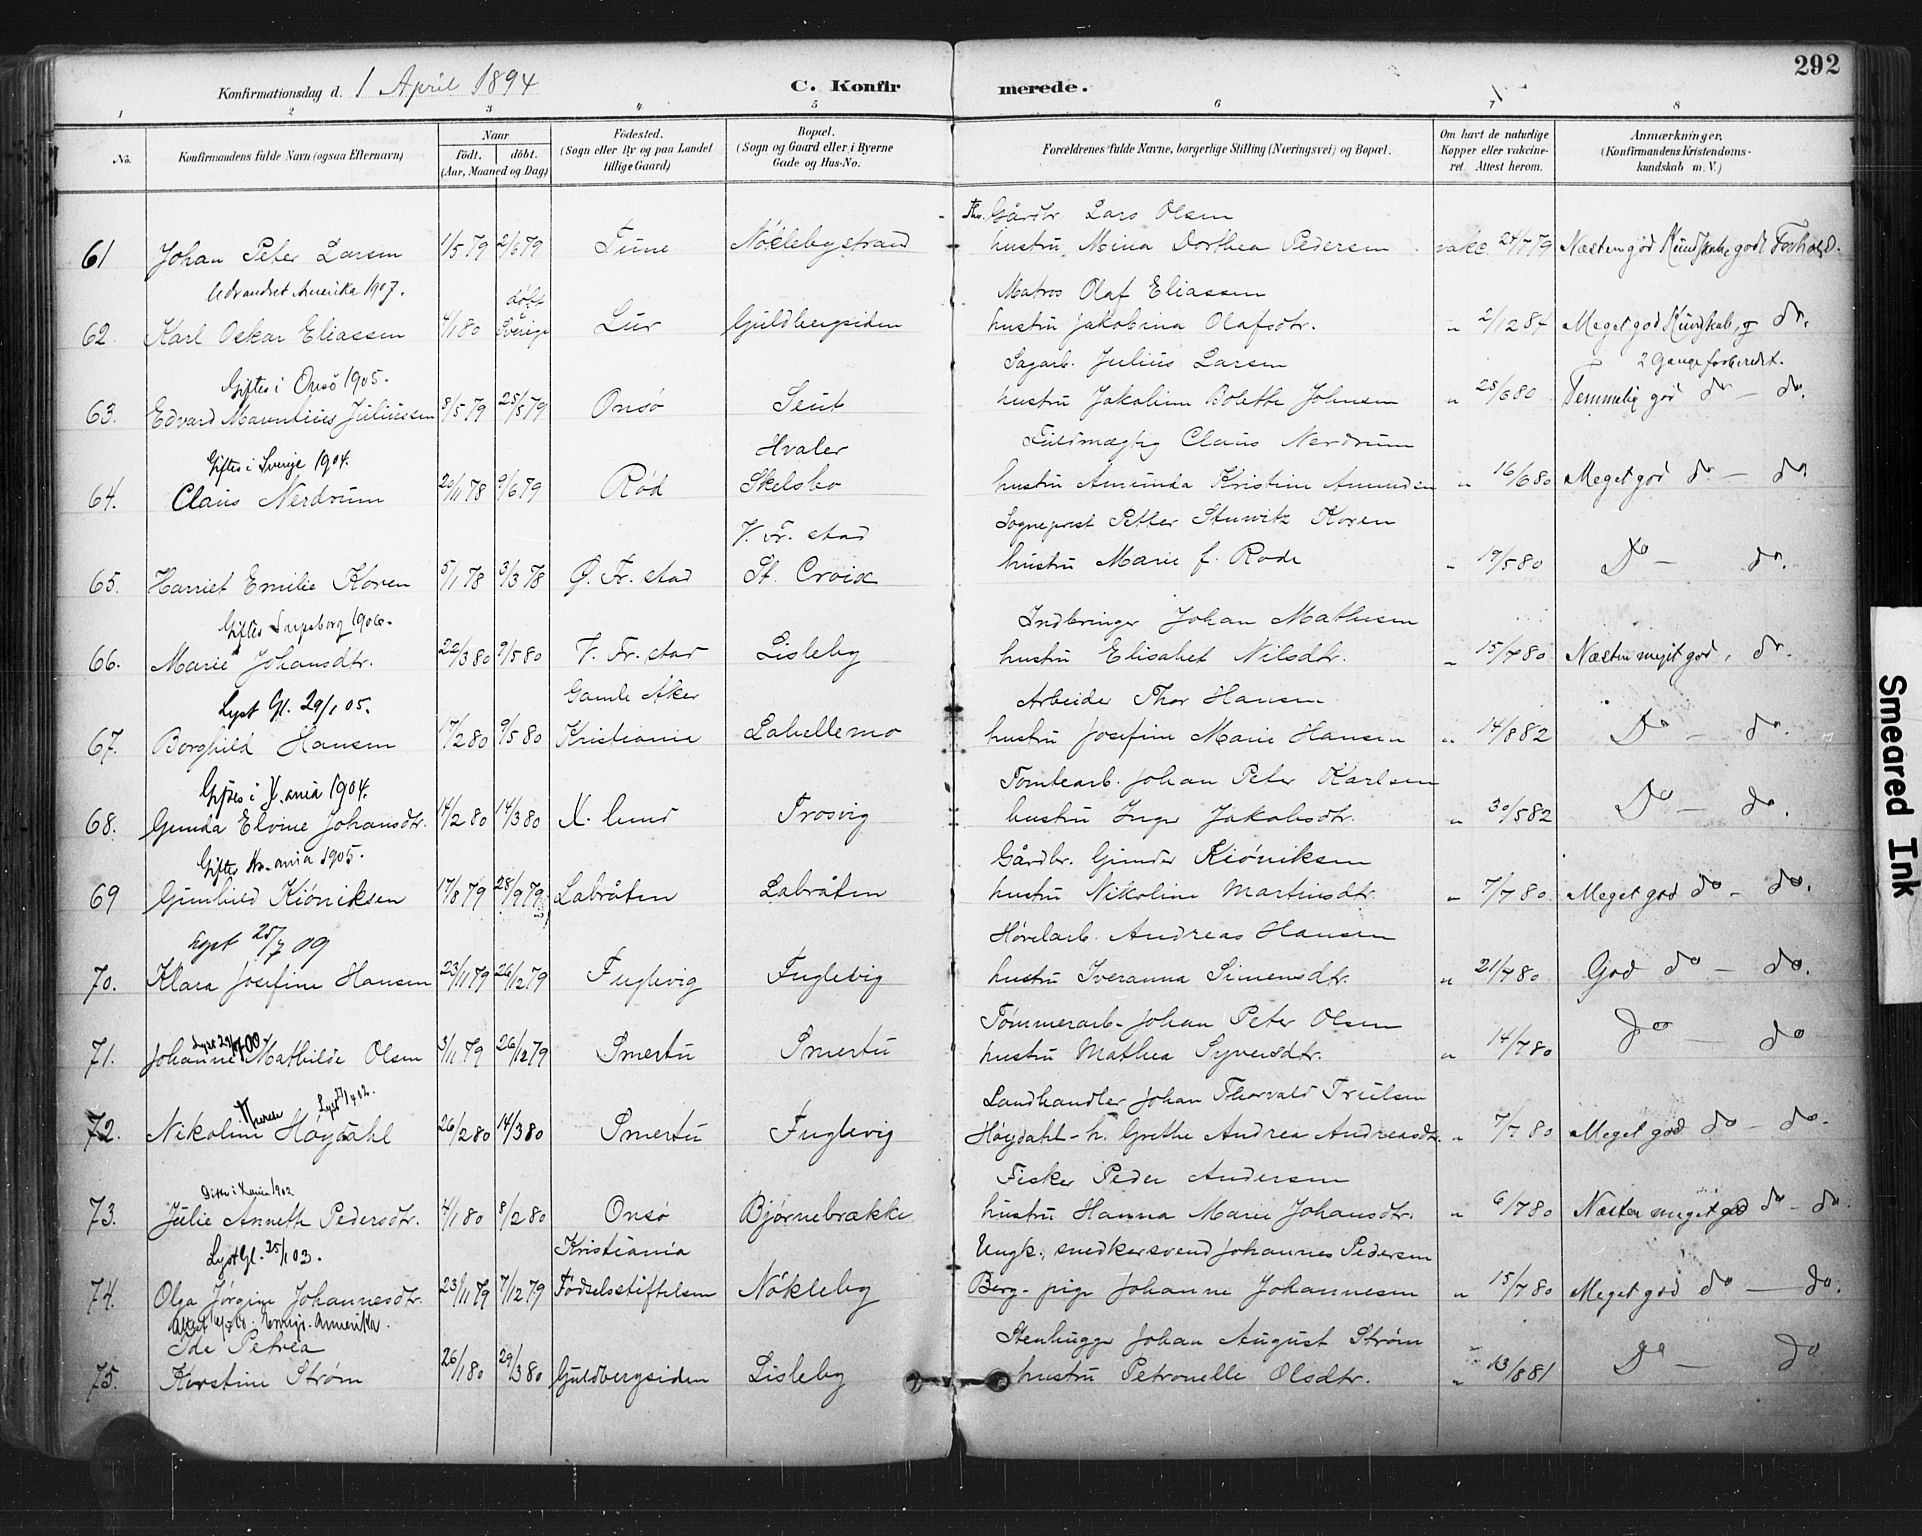 292
Konfirmationsdag d. 1 April 1894
C. Konfirmerede.
1 2 3 4 5 6 7 8
No.
Konfirmandens fulde Navn (ogsaa Efternavn)
Naar
födt. döbt.
(Aar, Maaned og Dag)
Födested.
(Sogn eller By og paa Landet
tillige Gaard)
Bopæl.
(Sogn og Gaard eller i Byerne
Gade og Hus-No.
Forældrenes fulde Navne, borgerlige Stilling (Næringsvei) og Bopæl.
Om havt de naturlige
Kopper eller vakcine-
ret Attest herom.
Anmærkninger.
(Konfirmandens Kristendoms-
kundskab m. V.)
Gårdbr. Lars Olsen
61 Johan Peter Larsen 1/5 79 2/6 79 Tune Nöclebystrand hustru Mina Dorthea Pedersen vakc. 24/7 79 Næsten god Kundskab, godt Forhold.
Udvandret Amerika 1907.
döbt i Sverige
Matros Olaf Eliassen
62. Karl Oskar Eliassen 4/1 80 Lur Guldbergsiden hustru Jakobina Olafsdtr. " 2/12 84 Meget god Kundskab, g do.
2 Gange forberedt.
Giftes i Onsö 1905.
Sagarb. Julius Larsen
63. Edvard Mauritius Juliussen 8/5 79 25/5 79 Onsö Seut hustru Jakobine Bolette Johnsen " 28/6 80 Temmelig god do - do.
Giftes i Sverige 1904.
Hvaler
Fuldmægtig Claus Nerdrum
64. Claus Nerdrum 20/11 78 9/6 79 Röd Skelsbo hustru Amunda Kristine Amundsen " 16/6 80 Meget god do - do.
V. Fr. stad
Sogneprest Petter Stuwitz Koren
65. Harriet Emilie Koren 5/1 78 3/3 78 Ø. Fr. stad St. Croix hustru Marie f. Rode " 19/5 80 Do - do.
Giftes Sarpsborg 1906.
Indbringer Johan Mathisen
66. Marie Johansdtr. 22/3 80 9/5 80 V. Fr. stad Lisleby hustru Elisabet Nilsdtr. " 15/7 80 Næsten meget god, do.
Lyst Gl. 29/1 05.
Gamle Aker
Arbeider Thor Hansen
67. Borghild Hansen 17/2 80 9/5 80 Kristiania Labellemo hustru Josefine Marie Hansen " 14/8 82 Do - do.
Giftes i X.ania 1904.
Tomtearb. Johan Peter Karlsen
68. Gunda Elvine Johansdtr. 14/2 80 14/3 80 X. lund Trosvig hustru Inger Jakobsdtr. " 30/5 82 Do - do.
Giftes Kr.ania 1905.
Gårdbr. Gunder Kiöniksen
69 Gunhild Kiöniksen 17/8 79 28/9 79 Labråten Labråten hustru Nikoline Martinsdtr. " 7/7 80 Meget god do - do.
Lyst 25/7 09
Høvelarb. Andreas Hansen
70. Klara Josefine Hansen 23/11 79 26/12 79 Fuglevig Fuglevig hustru Iveranna Simensdtr. " 21/7 80 God do - do.
Tømmerarb. Johan Peter Olsen
71. Johanne Mathilde Olsen 3/11 79 26/12 79 Smertu Smertu hustru Mathea Syversdtr. " 14/7 80 Do - do
Landhandler Johan Thorvald Trulsen
72. Nikoline Høydahl 26/2 80 14/3 80 Smertu Fuglevig Høydahl - h. Grethe Andrea Andreasdtr. " 7/7 80 Meget god do - do.
Fisker Peder Andersen
73. Julie Annette Pedersdtr. 4/1 80 8/2 80 Onsö Bjørnebrække hustru Hanna Marie Johansdtr. " 6/7 80 Næsten meget god do - do.
Lyst Gl. 25/1 03.
Kristiania
Ungk., snedkersvend Johannes Pedersen
74. Olga Jørgine Johannesdtr. 23/11 79 7/12 79 Födselsstiftelsen Nökleby Berg - pige Johanne Johannesen " 15/7 80 Meget god do - do.
Emigr. Amerika.
Ida Petrea
Stenhugger Johan August Strøm
75. Kirstine Strøm 26/1 80 29/3 80 Guldbergsiden Lisleby hustru Petronelle Olsdtr. " 13/8 81 Do - do
Smeared Ink